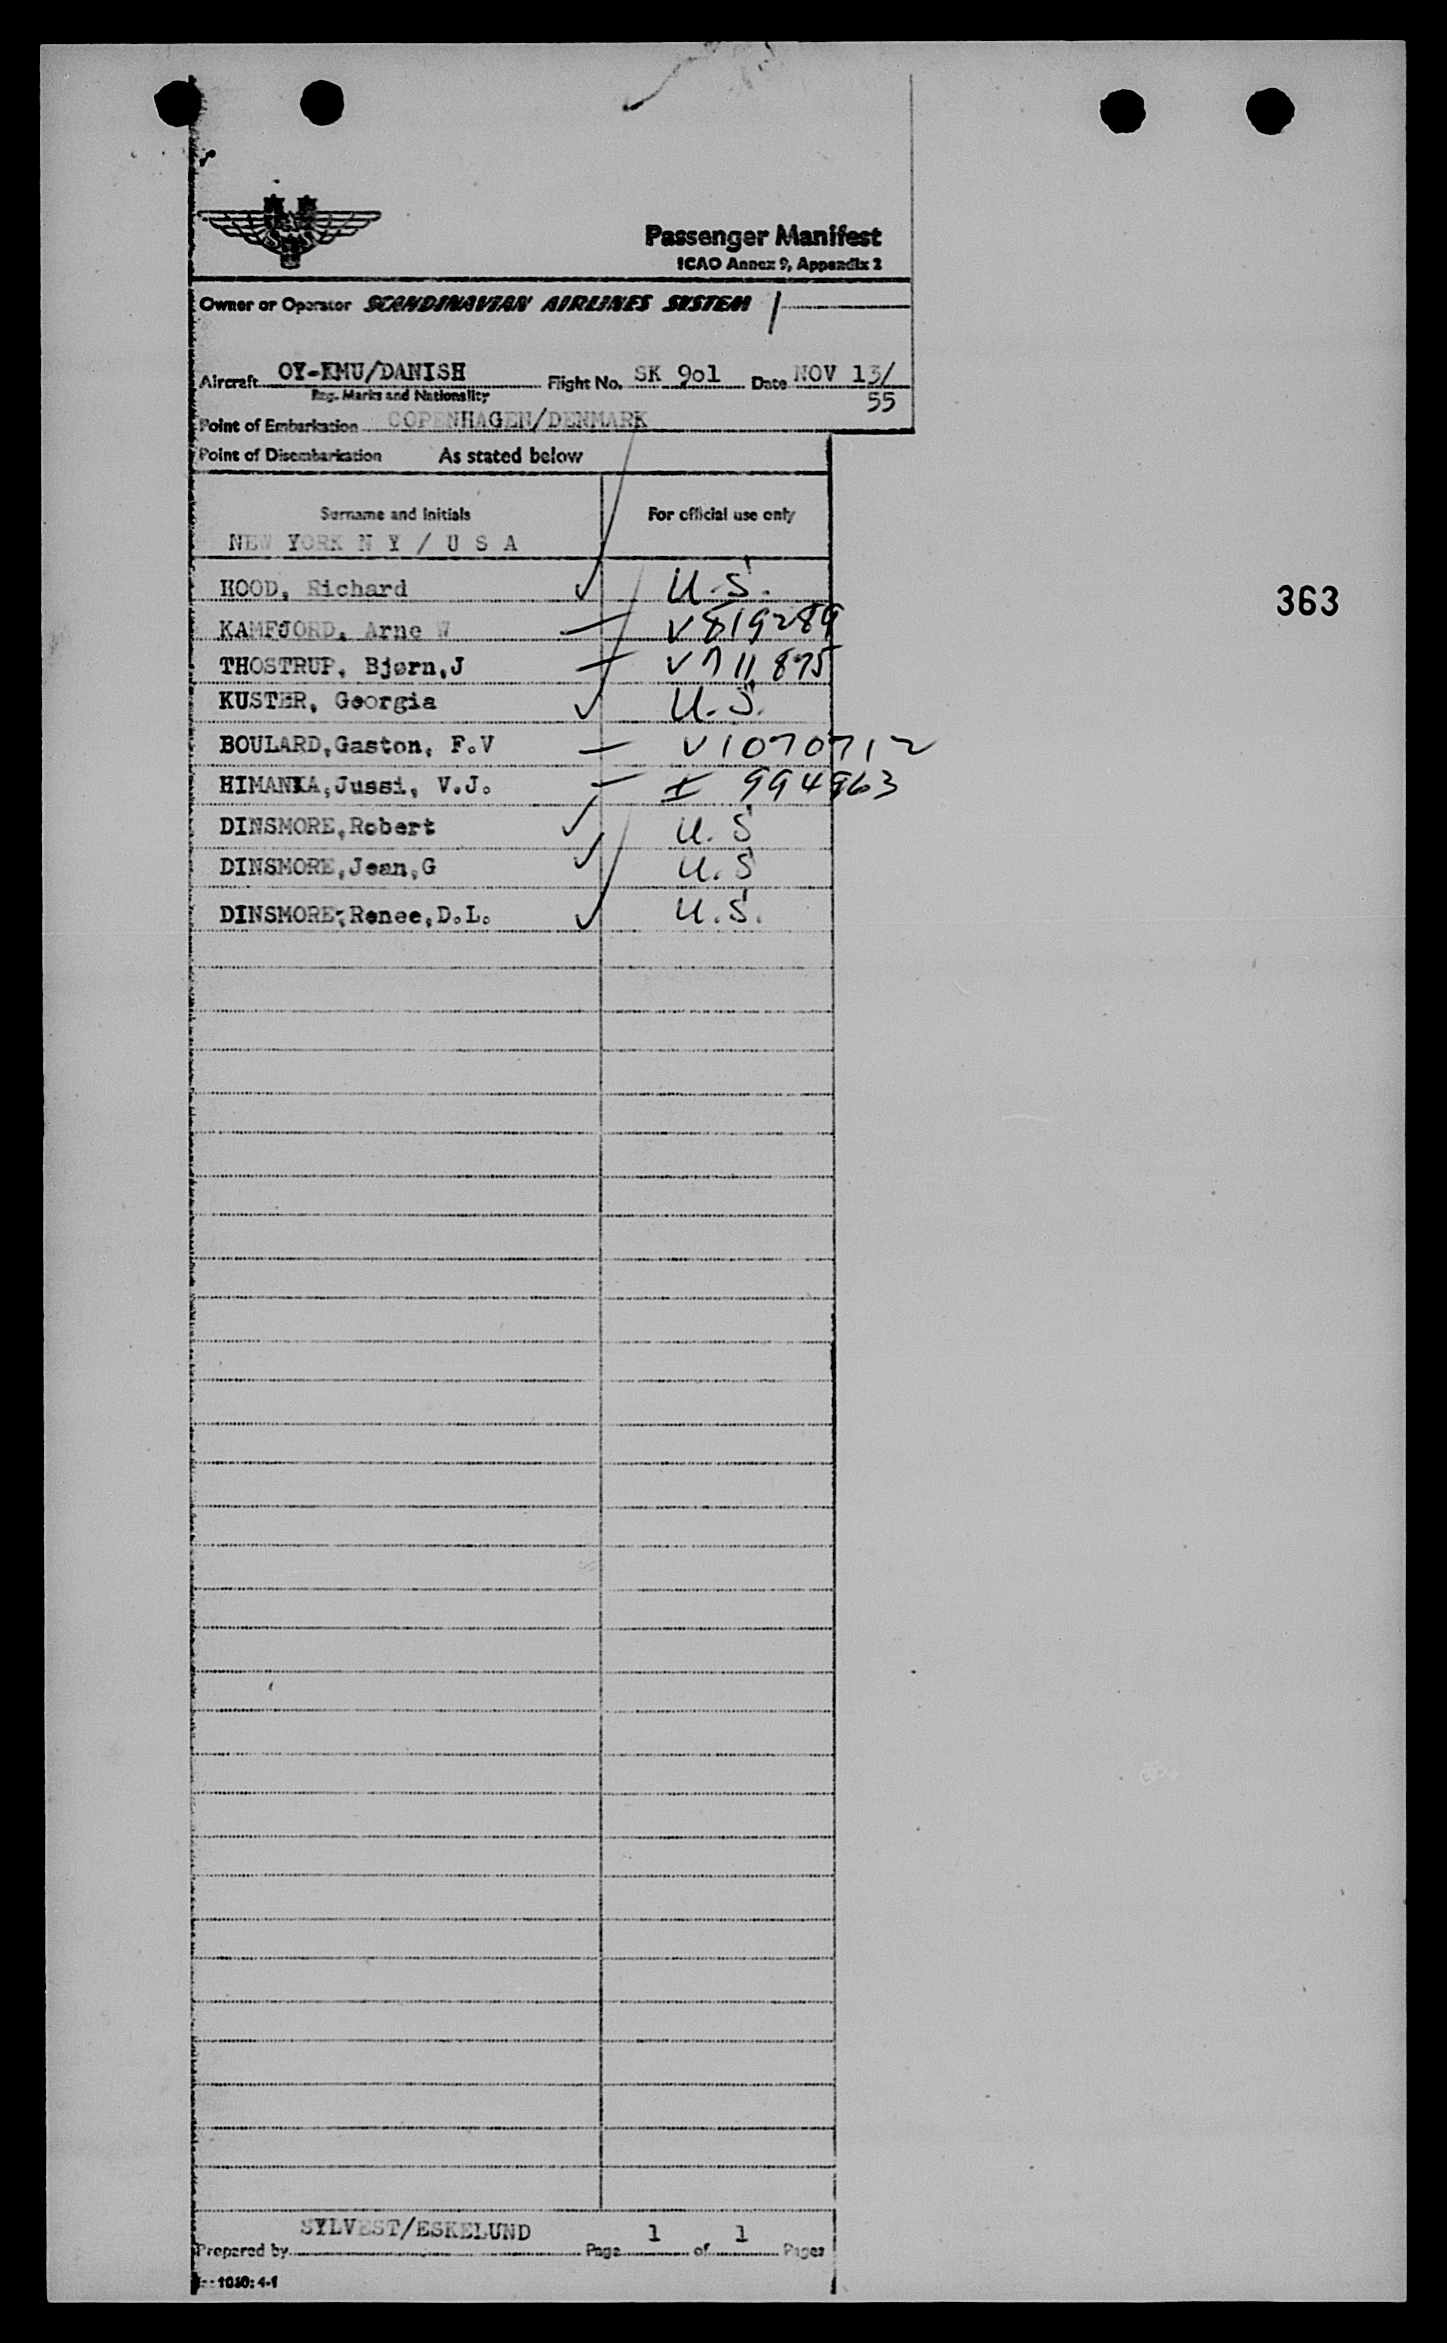 SAS
Passenger Manifest
ICAO Annex 9, Appendix 2
Owner or Operator SCANDINAVIAN AIRLINES SYSTEM /
Aircraft OY-KMU/DANISH Flight No. SK 9o1 Date NOV 13/
Reg. Marks and Nationality 55
Point of Embarkation COPENHAGEN/DENMARK
Point of Disembarkation As stated below
Surname and Initials For official use only
NEW YORK N Y / U S A
HOOD, Richard ✓ U.S.
363
KAMFJORD, Arne W — V 819289
THOSTRUP, Bjørn,J — V711875
KUSTER, Georgia ✓ U.S.
BOULARD,Gaston, F.V — V1070712
HIMANKA,Jussi, V.J. — I 994963
DINSMORE,Robert ✓ U.S
DINSMORE,Jean,G ✓ U.S
DINSMORE,Renee,D.L. ✓ U.S.
SYLVEST/ESKELUND
Prepared by Page 1 of 1 Pages
1050: 4-1